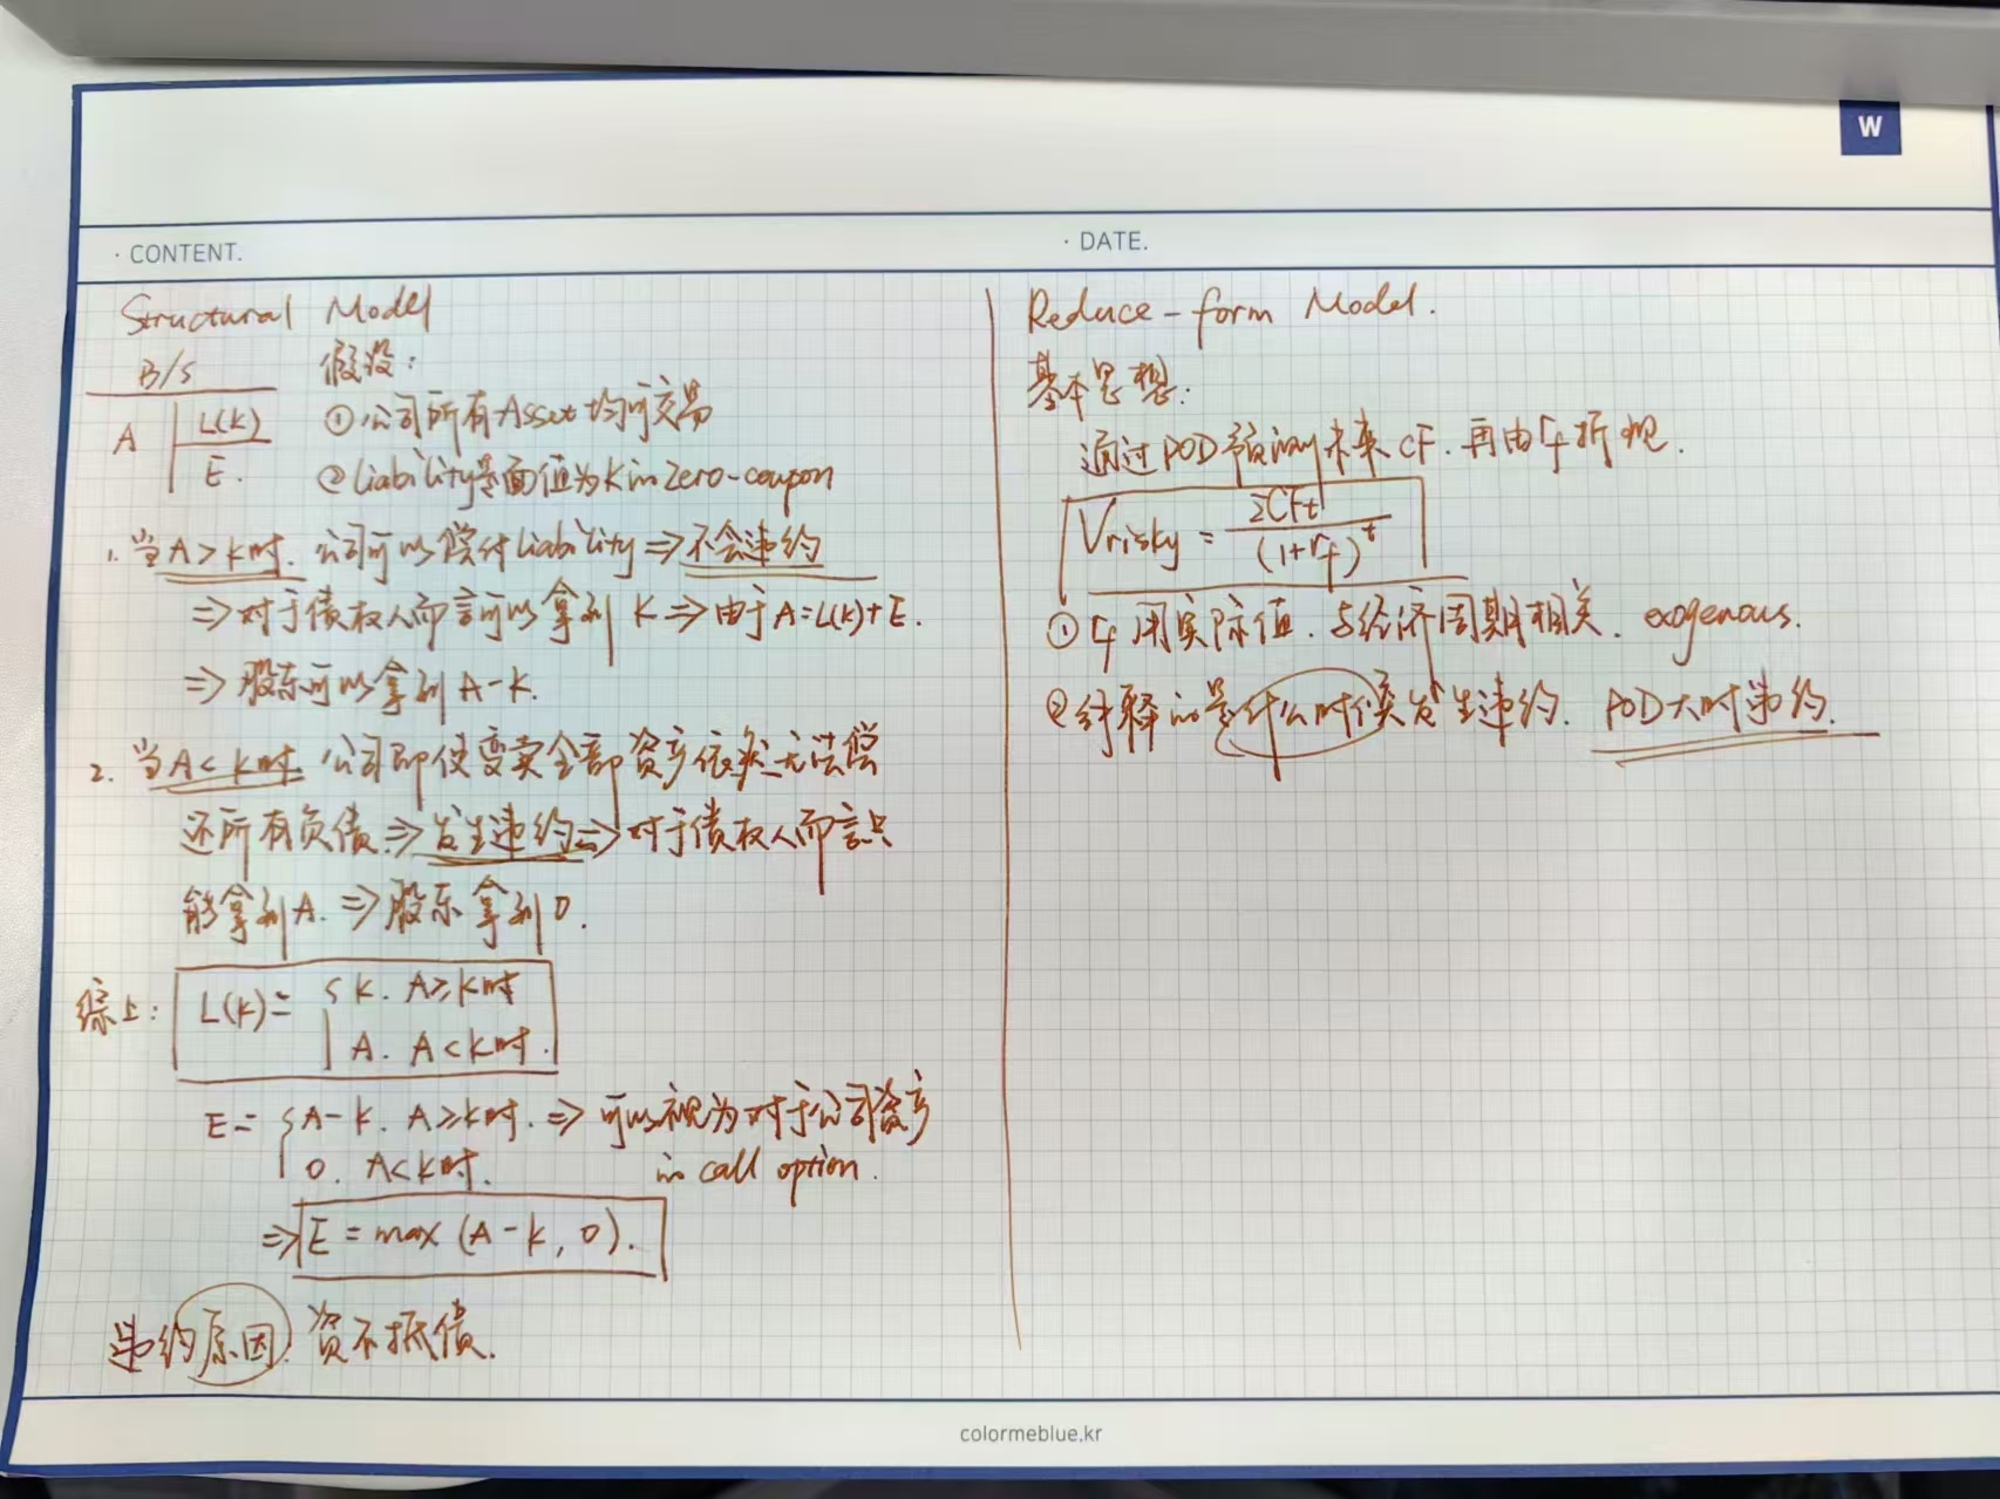 W
· CONTENT.
· DATE.
Structural Model
B/S 假设:
A L(K)
E.
①公司所有Asset均可交易
②liability是面值为K的zero-coupon
1. 当A>K时. 公司可以偿付liability⇒不会违约
⇒对于债权人而言可以拿到 K⇒由于A=L(K)+E.
⇒ 股东可以拿到 A-K.
2. 当A<K时. 公司即使变卖全部资产依然无法偿
还所有负债⇒发生违约⇒对于债权人而言只
能拿到A. ⇒股东拿到0.
综上: L(K)= { K. A≥K时
A. A<K时.
E= { A-K. A≥K时. ⇒ 可以视为对于公司资产
0. A<K时. 的 call option.
⇒ E = max (A-K, 0).
违约原因: 资不抵债.
Reduce-form Model.
基本思想:
通过POD预测未来CF. 再由rf折现.
Vrisky = ΣCFt / (1+rf)^t
①rf用实际值. 与经济周期相关. exogenous.
②解释的是什么时候发生违约. POD大时违约.
colormeblue.kr